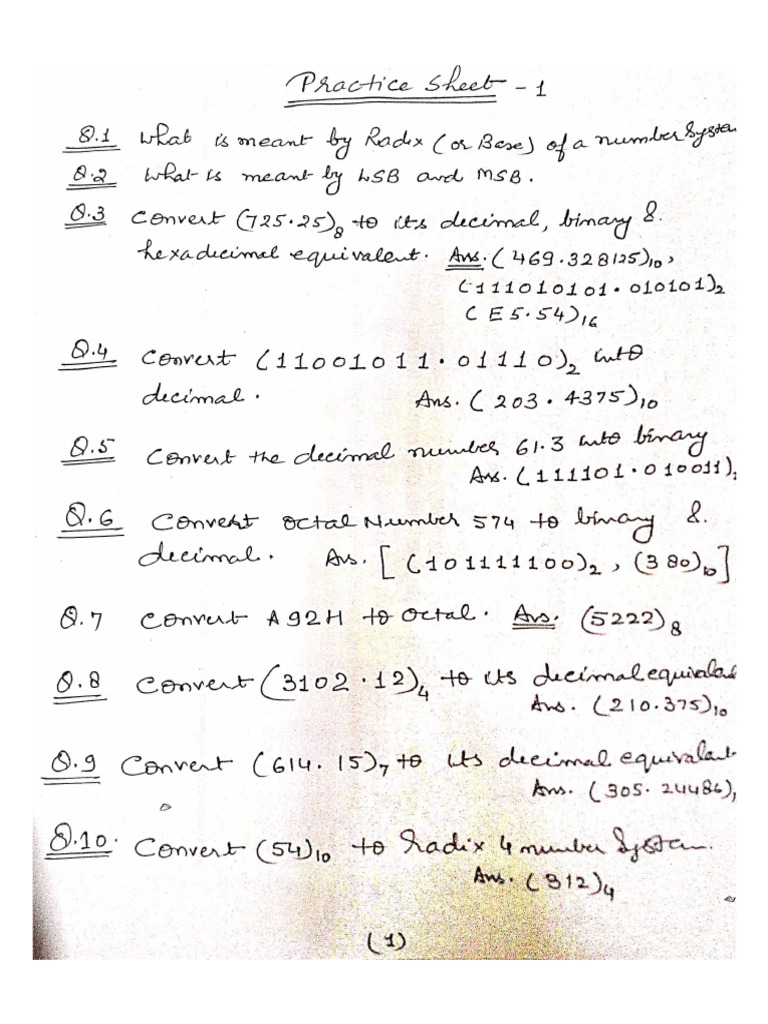 Practice Sheet - 1
Q.1 What is meant by Radix (or Base) of a number System
Q.2 What is meant by LSB and MSB.
Q.3 Convert (725.25)₈ to its decimal, binary &
hexadecimal equivalent. Ans. (469.328125)₁₀,
(111010101.010101)₂
(E5.54)₁₆
Q.4 Convert (11001011.01110)₂ into
decimal. Ans. (203.4375)₁₀
Q.5 Convert the decimal number 61.3 into binary
Ans. (111101.010011)₂
Q.6 Convert octal Number 574 to binary &
decimal. Ans. [(101111100)₂, (380)₁₀]
Q.7 Convert A92H to octal. Ans. (5222)₈
Q.8 Convert (3102.12)₄ to its decimal equivalent
Ans. (210.375)₁₀
Q.9 Convert (614.15)₇ to its decimal equivalent
Ans. (305.24486)₁
Q.10. Convert (54)₁₀ to radix 4 number System.
Ans. (312)₄
(1)